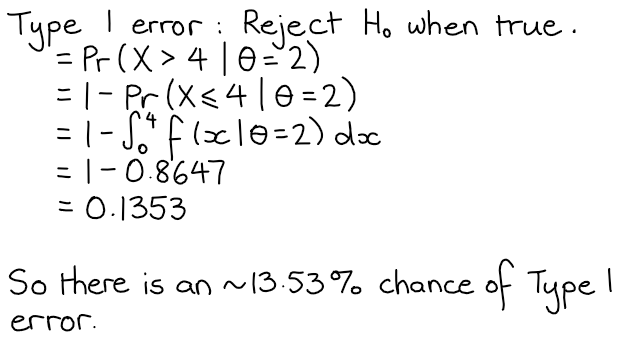 Type 1 error : Reject H₀ when true.
= Pr(X > 4 | θ = 2)
= 1 - Pr(X ≤ 4 | θ = 2)
= 1 - ∫₀⁴ f(x | θ = 2) dx
= 1 - 0.8647
= 0.1353
So there is an ~13.53% chance of Type 1
error.